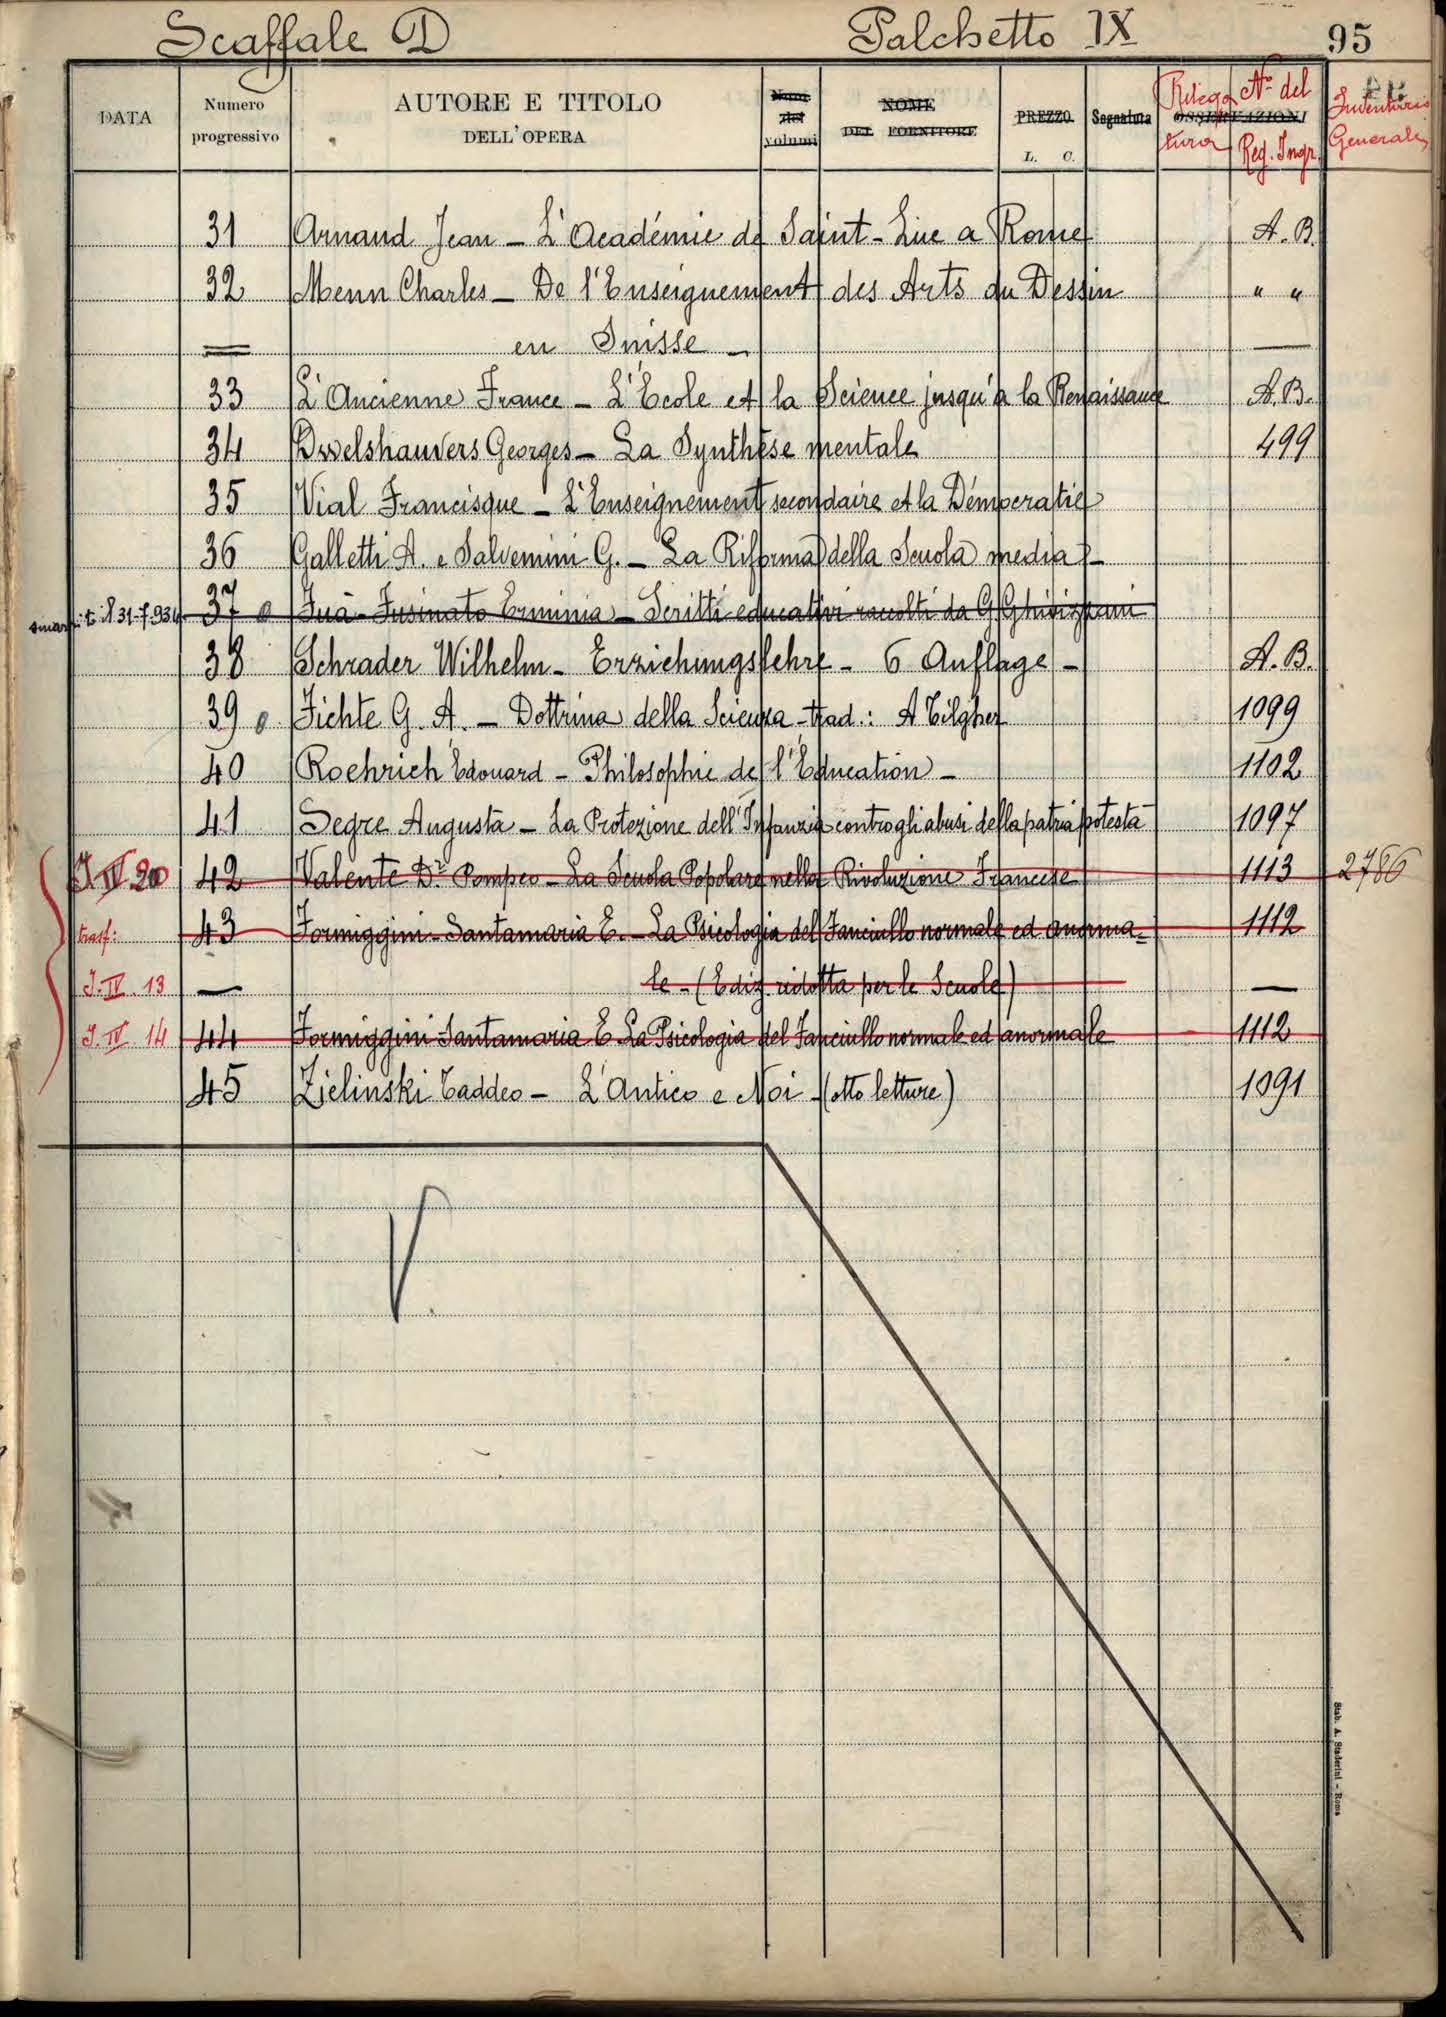 Scaffale D Palchetto IX 95
DATA Numero progressivo AUTORE E TITOLO DELL'OPERA Num. dei volumi NOME DEL FORNITORE PREZZO L. C. Segnatura Rilegatura OSSERVAZIONI N.° del Reg. Ingr. Inventario Generale
31 Arnaud Jean - L'Académie de Saint-Luc a Rome A.B.
32 Menn Charles - De l'Enseignement des Arts du Dessin " "
en Suisse -
33 L'Ancienne France - L'Ecole et la Science jusqu'a la Renaissance A.B.
34 Dwelshauvers Georges - La Synthèse mentale 499
35 Vial Francisque - L'Enseignement secondaire et la Démocratie
36 Galletti A. e Salvemini G. - La Riforma della Scuola media -
37 Fuà-Fusinato Erminia - Scritti educativi raccolti da G. Ghivizzani
38 Schrader Wilhelm - Erziehungslehre - 6 Auflage - A.B.
39 Fichte G. A. - Dottrina della Scienza - trad.: A Tilgher 1099
40 Roehrich Edouard - Philosophie de l'Education - 1102
41 Segre Augusta - La Protezione dell'Infanzia contro gli abusi della patria potestà 1097
I. IV 20 42 Valente Dr. Pompeo - La Scuola Popolare nella Rivoluzione Francese 1113 2786
trasf: 43 Formiggini-Santamaria E. - La Psicologia del Fanciullo normale ed anorma- 1112
I. IV. 13 — le - (Ediz. ridotta per le Scuole) —
I. IV 14 44 Formiggini Santamaria E. La Psicologia del Fanciullo normale ed anormale 1112
45 Zielinski Taddeo - L'Antico e Noi - (otto letture) 1091
Stab. A. Staderini - Roma